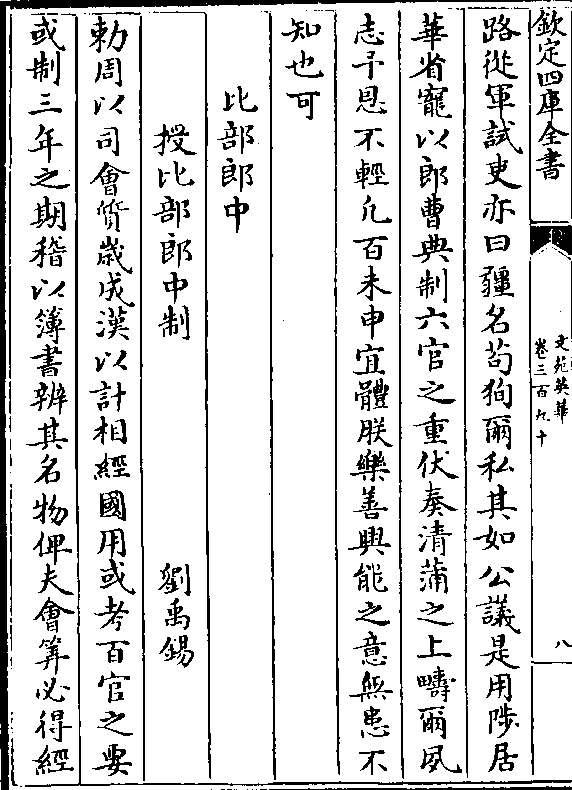 欽定四庫全書
文苑英華
卷三百九十
八
路從軍試吏亦曰疆名苟狥爾私其如公議是用陟居
華省寵以郎曹典制六官之重伏奏清蒲之上疇爾夙
志予恩不輕凢百未申宜體朕樂善與能之意無患不
知也可
比部郎中
授比部郎中制 劉禹錫
勅周以司會質歳成漢以計相經國用或考百官之要
或制三年之期稽以簿書辨其名物俾夫會筭必得經